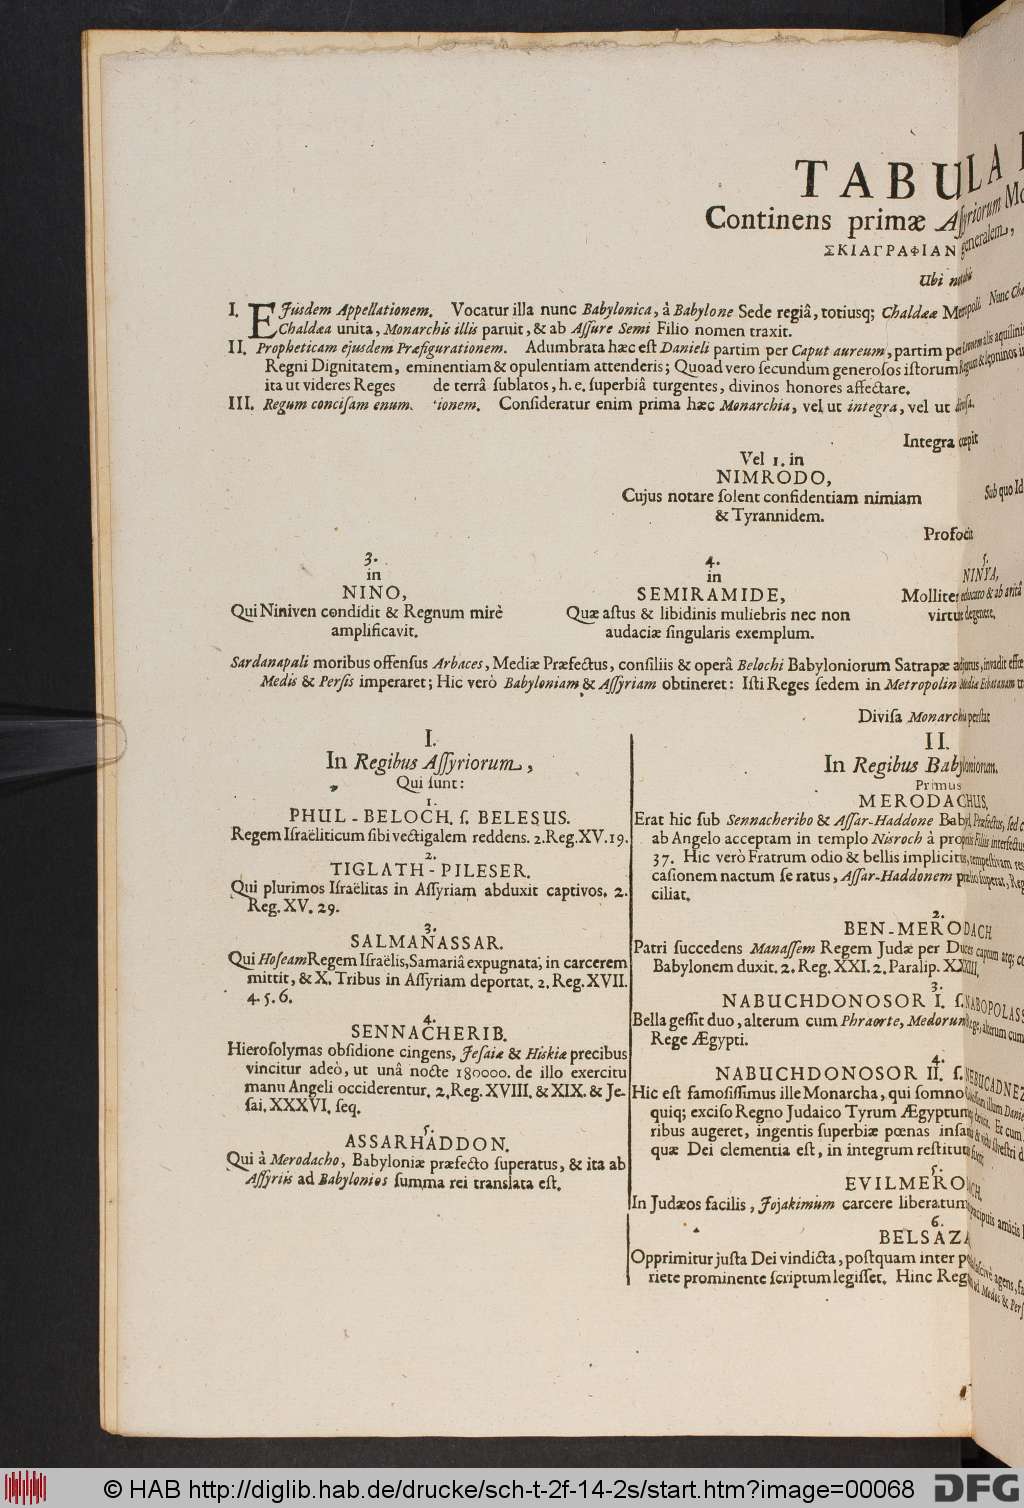 TABULA
Continens primæ Aſſyriorum Mo
ΣΚΙΑΓΡΑΦΙΑΝ generalem,
Ubi
I. EJúsdem Appellationem. Vocatur illa nunc Babylonica, à Babylone Sede regiâ, totiusq; Chaldææ Metropoli. Nunc Cha
Chaldæa unita, Monarchis illis paruit, & ab Aſſure Semi Filio nomen traxit.
II. Propheticam ejusdem Præfigurationem. Adumbrata hæc eſt Danieli partim per Caput aureum, partim per Leonem alis aquilinis
Regni Dignitatem, eminentiam & opulentiam attenderis; Quoad vero ſecundum generoſos iſtorum Regum & leoninos
ita ut videres Reges de terrâ ſublatos, h. e. ſuperbiâ turgentes, divinos honores affectare.
III. Regum conciſam enum. ionem. Conſideratur enim prima hæc Monarchia, vel ut integra, vel ut diviſa.
Integra cœpit
Vel 1. in
NIMRODO,
Cujus notare ſolent confidentiam nimiam
& Tyrannidem.
Sub quo Id
3.
in
NINO,
Qui Niniven condidit & Regnum mirè
amplificavit.
4.
in
SEMIRAMIDE,
Quæ aſtus & libidinis muliebris nec non
audaciæ ſingularis exemplum.
5.
NINYA,
Molliter educato & ab avitâ
virtute degenere.
Sardanapali moribus offenſus Arbaces, Mediæ Præfectus, conſiliis & operâ Belochi Babyloniorum Satrapæ adjutus, invadit
Medis & Perſis imperaret; Hic verò Babyloniam & Aſſyriam obtineret: Iſti Reges ſedem in Metropolin Mediæ Ecbatanam
Diviſa Monarchia perſtat
I.
In Regibus Aſſyriorum,
Qui ſunt:
1.
PHUL-BELOCH. ſ. BELESUS.
Regem Iſraëliticum ſibi vectigalem reddens. 2. Reg. XV. 19.
2.
TIGLATH-PILESER.
Qui plurimos Iſraëlitas in Aſſyriam abduxit captivos. 2.
Reg. XV. 29.
3.
SALMANASSAR.
Qui Hoſeam Regem Iſraëlis, Samariâ expugnatâ, in carcerem
mittit, & X. Tribus in Aſſyriam deportat. 2. Reg. XVII.
4. 5. 6.
4.
SENNACHERIB.
Hieroſolymas obſidione cingens, Jeſaiæ & Hiskiæ precibus
vincitur adeò, ut unâ nocte 180000. de illo exercitu
manu Angeli occiderentur. 2. Reg. XVIII. & XIX. & Je-
ſai. XXXVI. ſeq.
5.
ASSARHADDON.
Qui à Merodacho, Babyloniæ præfecto ſuperatus, & ita ab
Aſſyriis ad Babylonios ſumma rei translata eſt.
II.
In Regibus Babyloniorum.
Primus
MERODACHUS,
Erat hic ſub Sennacheribo & Aſſar-Haddone Babyl. Præfectus, ſed
ab Angelo acceptam in templo Nisroch à propriis Filiis interfectus
37. Hic verò Fratrum odio & bellis implicitus, tempeſtivam
caſionem nactum ſe ratus, Aſſar-Haddonem prælio ſuperat, Reg
ciliat.
2.
BEN-MERODACH
Patri ſuccedens Manaſſem Regem Judæ per Duces captum atq;
Babylonem duxit. 2. Reg. XXI. 2. Paralip. XXXIII.
3.
NABUCHDONOSOR I. ſ. NABOPOLASS
Bella geſſit duo, alterum cum Phraorte, Medorum Rege, alterum cum
Rege Ægypti.
4.
NABUCHDONOSOR II. ſ. NEBUCADNEZ
Hic eſt famoſiſſimus ille Monarcha, qui ſomno
quiq; exciſo Regno Judaico Tyrum Ægyptum Et cum
ribus augeret, ingentis ſuperbiæ pœnas
quæ Dei clementia eſt, in integrum reſtitutus fuit.
5.
EVILMERODACH.
In Judæos facilis, Jojakimum carcere liberatum præcipuis amicis
6.
BELSAZA
Opprimitur juſta Dei vindicta, poſtquam inter laſcivè agens,
riete prominente ſcriptum legiſſet. Hinc Regnum ad Medos & Perſ
© HAB http://diglib.hab.de/drucke/sch-t-2f-14-2s/start.htm?image=00068
DFG